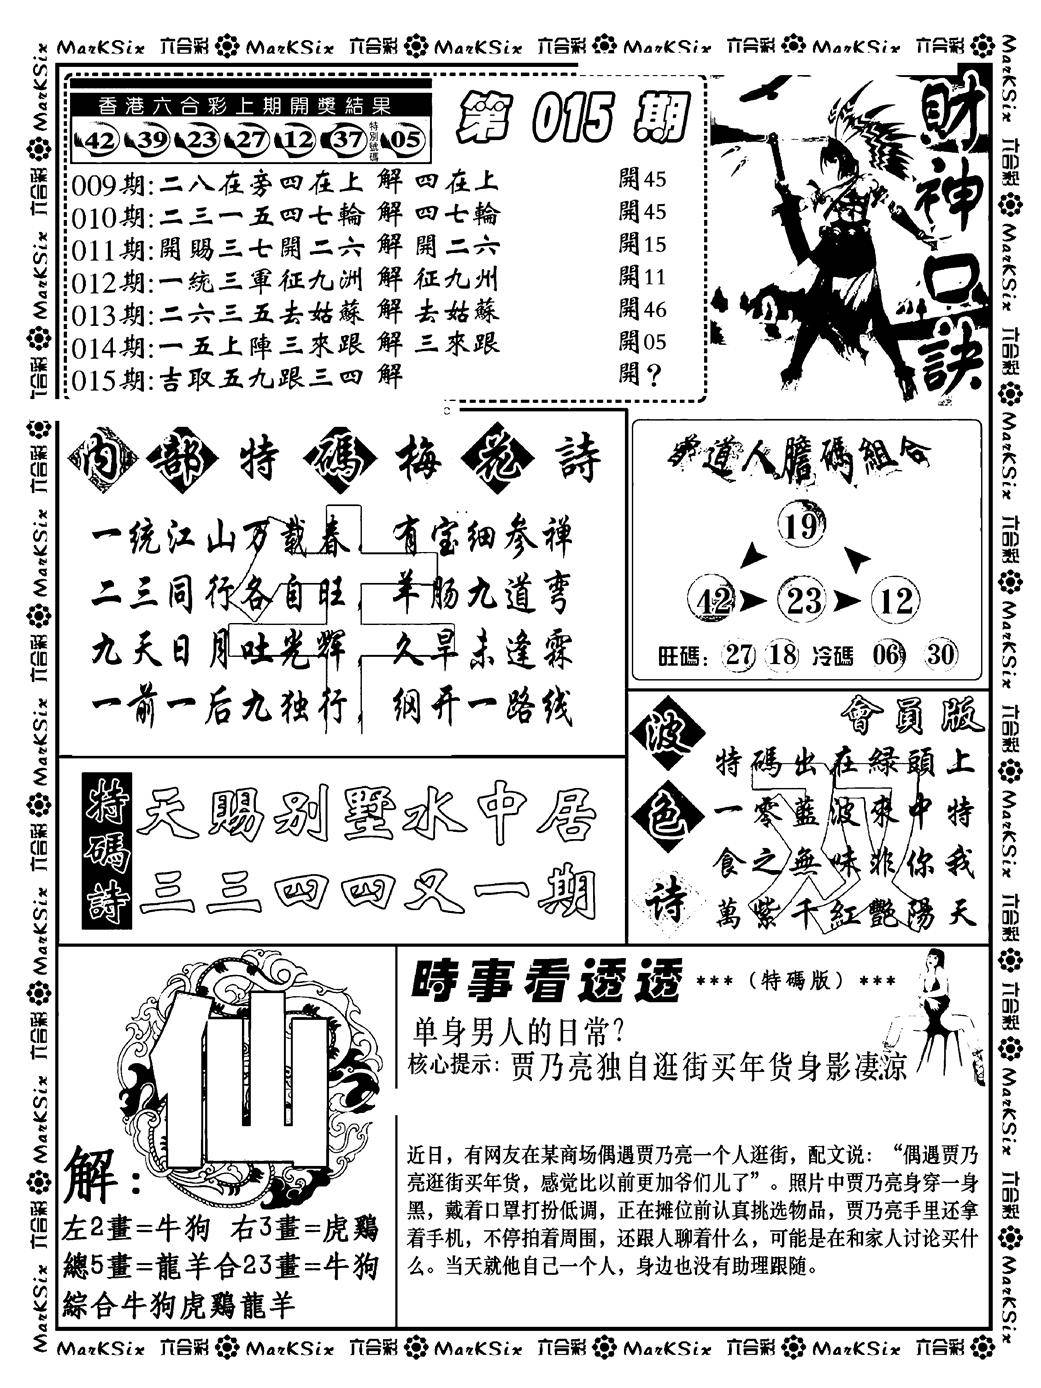 MarKSix 六合彩 MarKSix 六合彩 MarKSix 六合彩 MarKSix 六合彩 MarKSix 六合彩
香港六合彩上期開獎結果
42 39 23 27 12 37 特別號碼 05
第 015 期
財神口訣
009期:二八在旁四在上 解 四在上 開45
010期:二三一五四七輪 解 四七輪 開45
011期:開賜三七開二六 解 開二六 開15
012期:一統三軍征九洲 解 征九州 開11
013期:二六三五去姑蘇 解 去姑蘇 開46
014期:一五上陣三來跟 解 三來跟 開05
015期:吉取五九跟三四 解 開?
內部特碼梅花詩
一统江山万载春，有宝细参禅
二三同行各自旺，羊肠九道弯
九天日月吐光辉，久旱未逢霖
一前一后九独行，纲开一路线
道人膽碼組合
19
42 23 12
旺碼: 27 18 冷碼 06 30
特碼詩
天賜別墅水中居
三三四四又一期
波色诗
會員版
特碼出在緑頭上
一零藍波來中特
食之無味非你我
萬紫千紅艷陽天
仙
解:
左2畫=牛狗 右3畫=虎鷄
總5畫=龍羊合23畫=牛狗
綜合牛狗虎鷄龍羊
時事看透透 ***（特碼版）***
单身男人的日常?
核心提示: 贾乃亮独自逛街买年货身影凄凉
近日，有网友在某商场偶遇贾乃亮一个人逛街，配文说：“偶遇贾乃
亮逛街买年货，感觉比以前更加爷们儿了”。照片中贾乃亮身穿一身
黑，戴着口罩打扮低调，正在摊位前认真挑选物品，贾乃亮手里还拿
着手机，不停拍着周围，还跟人聊着什么，可能是在和家人讨论买什
么。当天就他自己一个人，身边也没有助理跟随。
MarKSix 六合彩 MarKSix 六合彩 MarKSix 六合彩 MarKSix 六合彩 MarKSix 六合彩